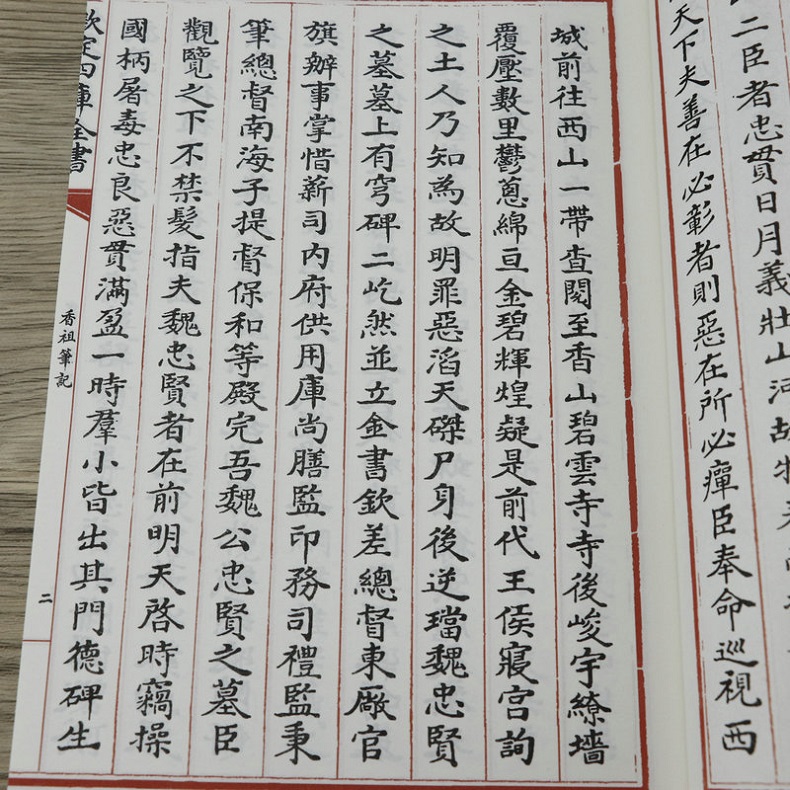 二臣者忠貫日月義壯山河故
天下夫善在必彰者則惡在所必癉臣奉命巡視西
城前往西山一帶查閱至香山碧雲寺寺後峻宇繚墻
覆壓數里鬱蔥綿亘金碧輝煌疑是前代王侯寢宫詢
之土人乃知為故明罪惡滔天磔尸身後逆璫魏忠賢
之墓墓上有穹碑二屹然並立金書欽差總督東廠官
旗辦事掌惜薪司内府供用庫尚膳監印務司禮監秉
筆總督南海子提督保和等殿完吾魏公忠賢之墓臣
觀覽之下不禁髮指夫魏忠賢者在前明天啓時竊操
國柄屠毒忠良惡貫滿盈一時羣小皆出其門德碑生
欽定四庫全書
香祖筆記
二